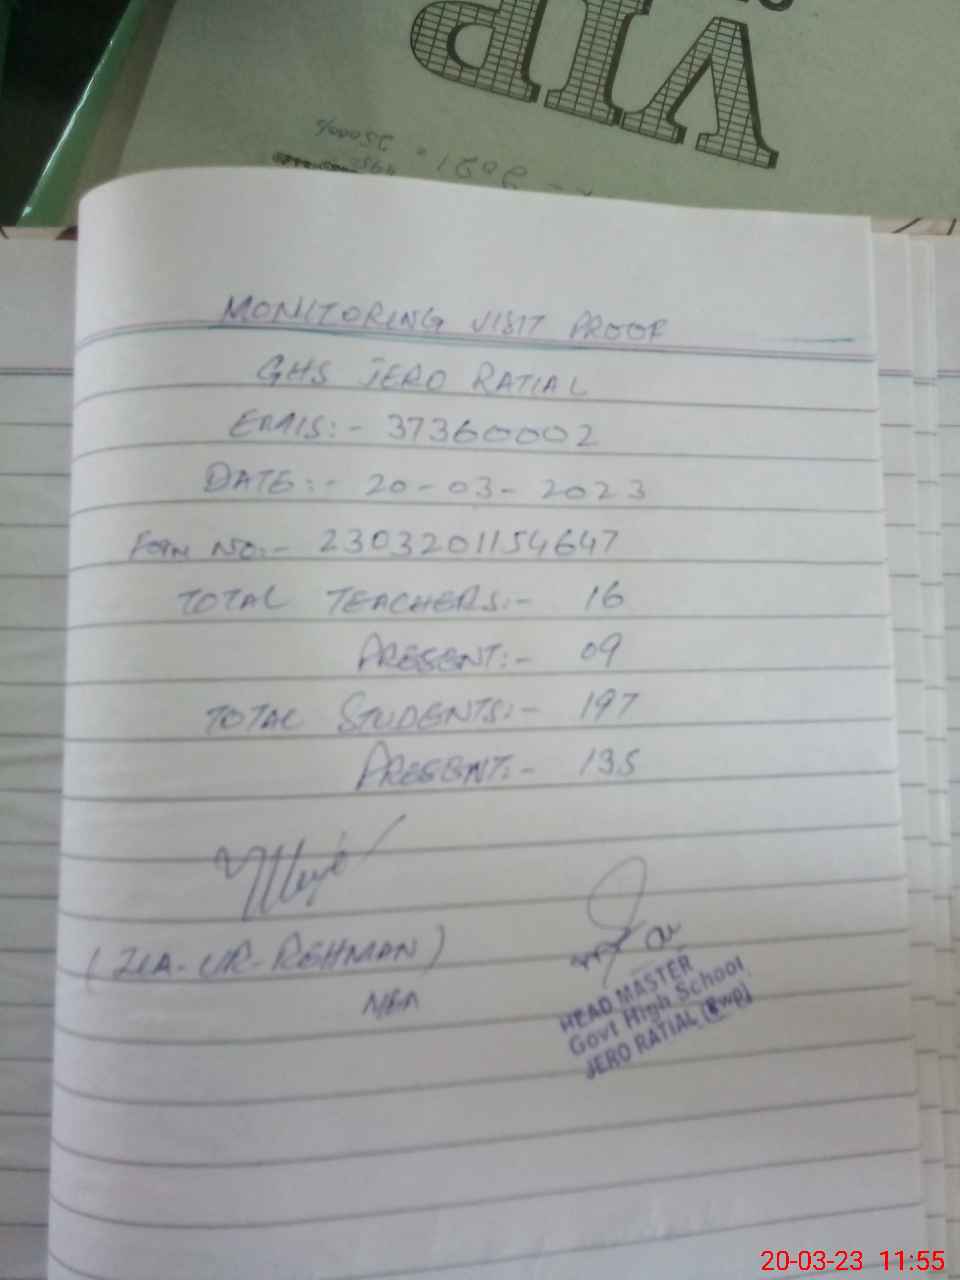 VIP
MONITORING VISIT PROOF
GHS JERO RATIAL
EMIS:- 37360002
DATE:- 20-03-2023
Form NO:- 2303201154647
TOTAL TEACHERS:- 16
PRESENT:- 09
TOTAL STUDENTS:- 197
PRESENT:- 135
(ZIA-UR-REHMAN)
MEA
HEAD MASTER
Govt High School
JERO RATIAL (Rwp)
20-03-23 11:55